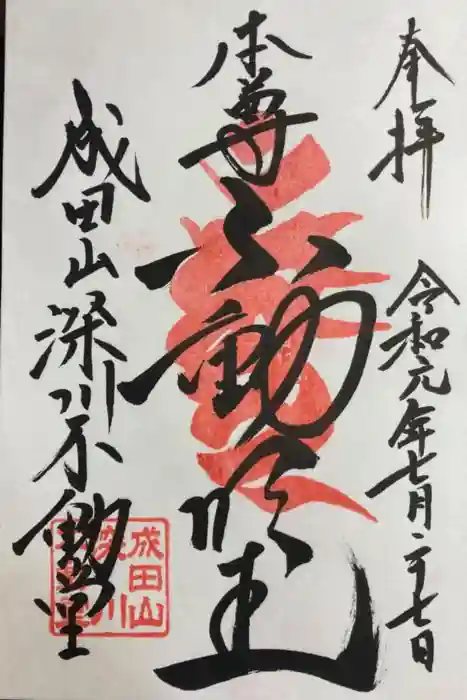 奉拝
令和元年七月二十七日
本尊
不動明王
成田山深川不動堂
成田山
深川